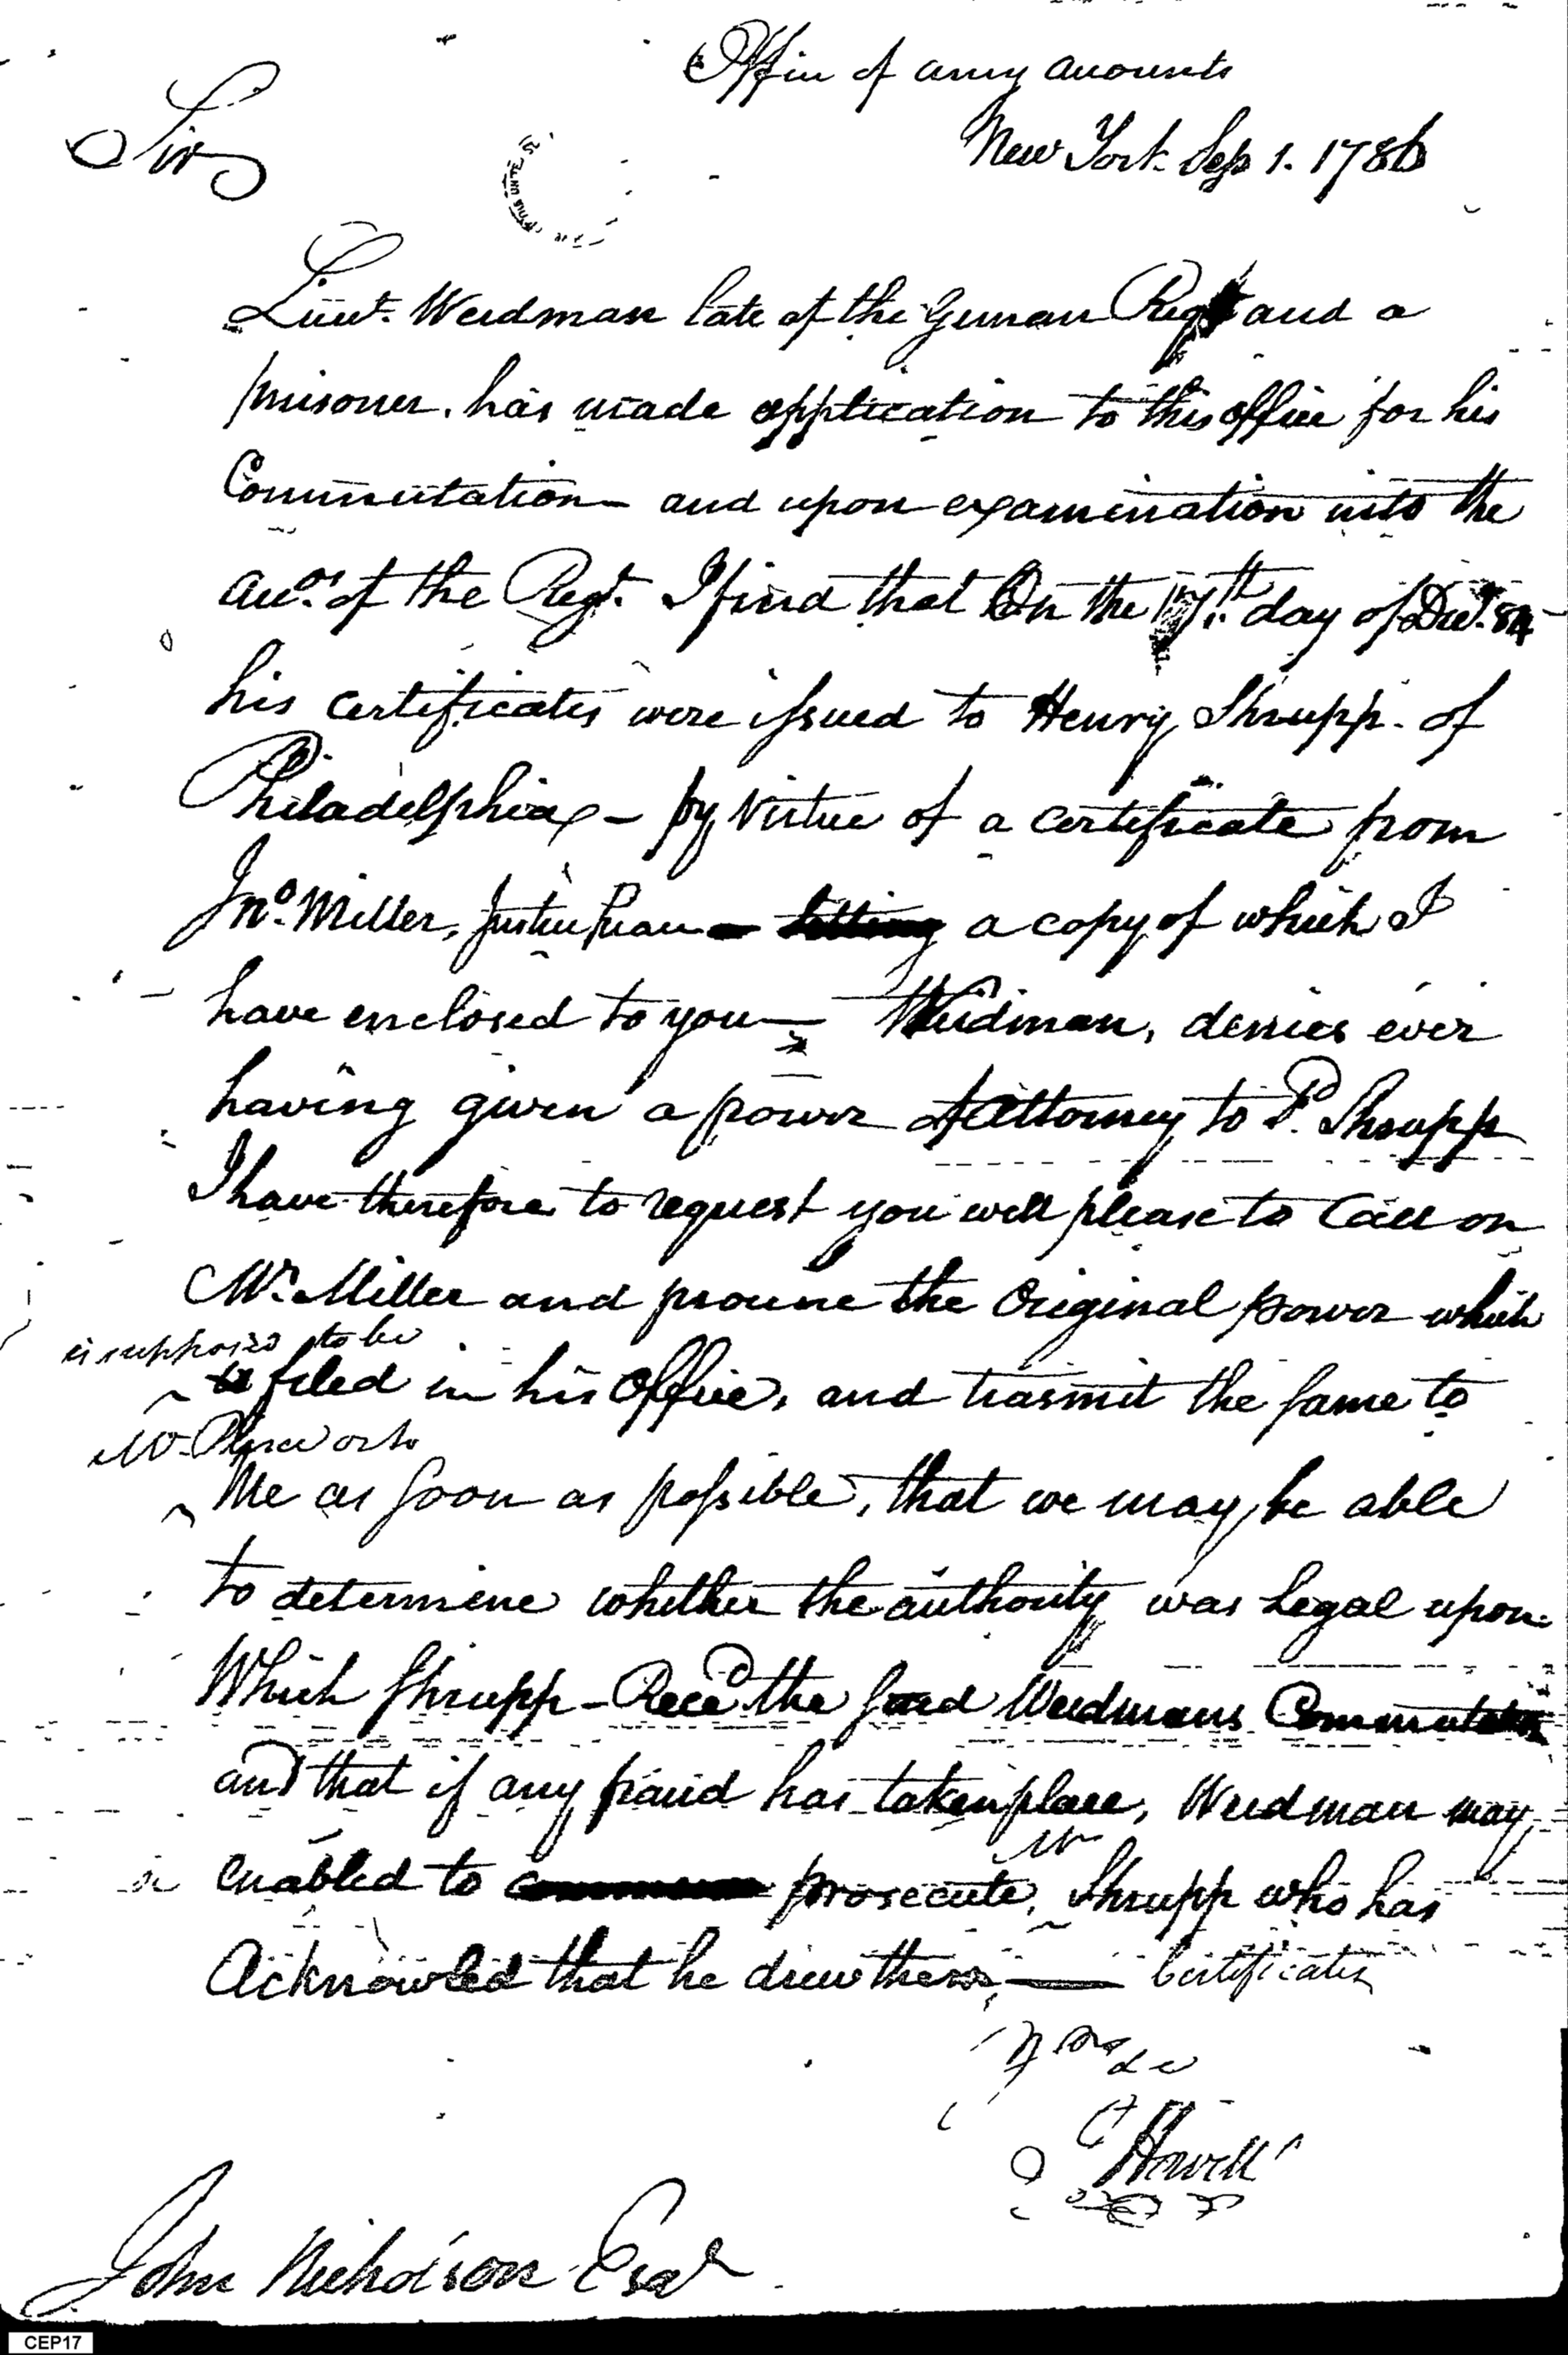 Office of army accounts
New York Sep 1. 1786
Sir
Lieut. Weidman late of the German Regt and a
prisoner, has made application to this office for his
Commutation - and upon examination into the
acco.ts of the Regt. I find that On the 17th. day of Decr. 84
his certificates were issued to Henry Shrupp. of
Philadelphia - by virtue of a certificate from
Jno. Miller, Justice Peace - a copy of which I
have enclosed to you - Weidman, denies ever
having given a power of Attorney to P. Shrupp
I have therefore to request you will please to Call on
Mr. Miller and procure the Original power which
is supposed to be
filed in his Office, and trasmit the same to
Mr. Pierce or to
Me as soon as possible, that we may be able
to determine whether the authority was Legal upon
Which Shrupp - Rece'd the said Weidmans Commutation
and that if any fraud has taken place, Weidman may
Mr
enabled to prosecute, Shrupp who has
Acknowled that he drew these certificates
Howell
John Nicholson Esqr
CEP17